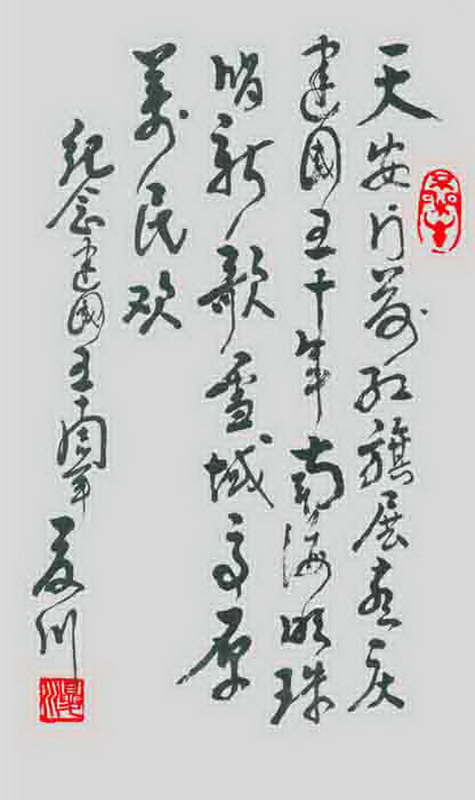 天安门前红旗展喜庆
建国五十年南海明珠
唱新歌雪域高原
萬民欢
纪念建国五十周年 夏川